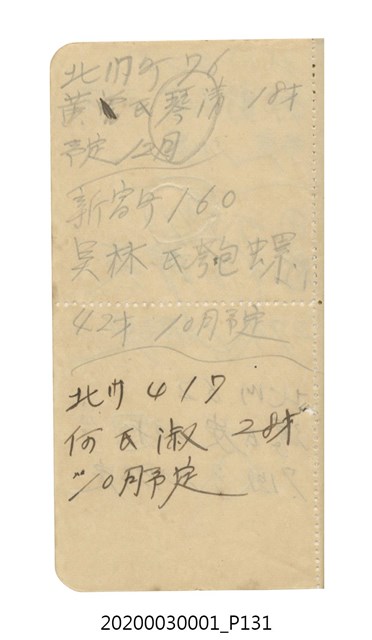 北門町 76
黄曾氏琴清 18才
予定 12月
新富午160
吳林氏匏螺
42才 10月予定
北门 417
何氏淑 28才
10月予定
20200030001_P131